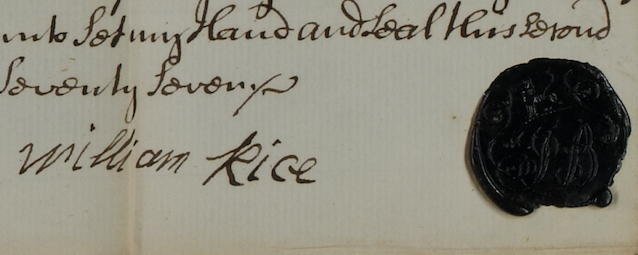 unto Set my Hand and Seal this Second
Seventy Seven
William Rice